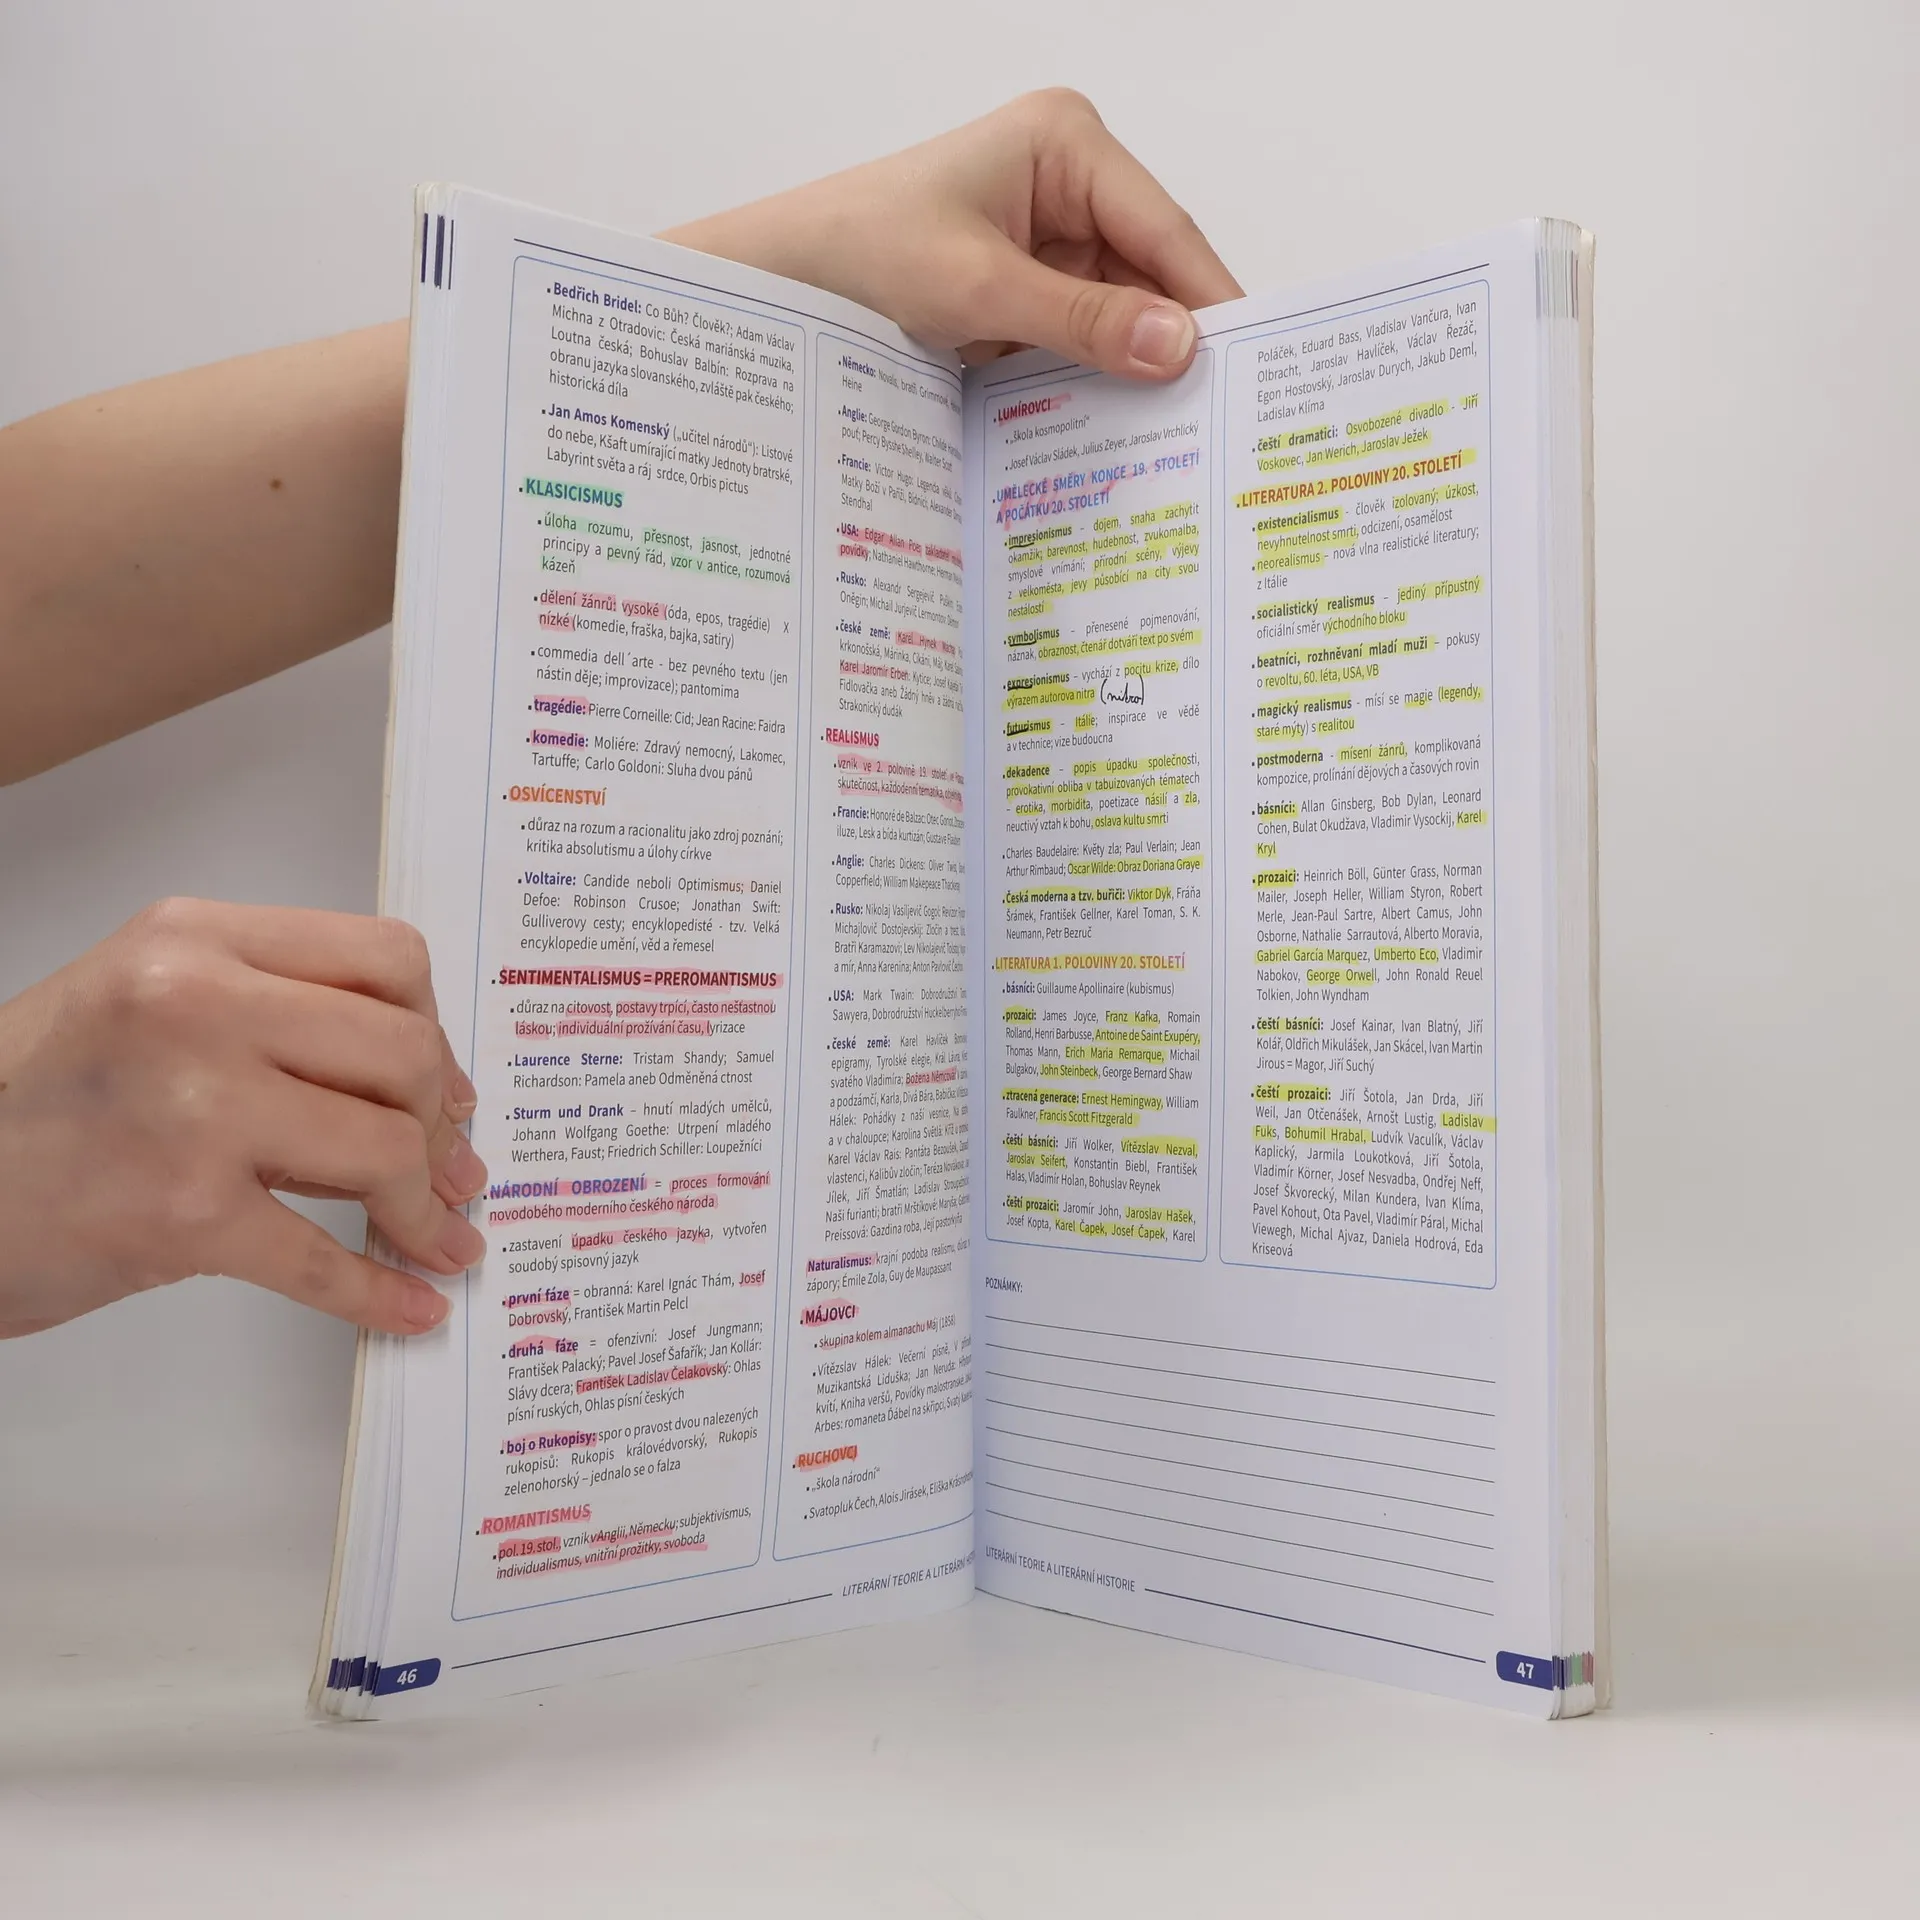 ▪ Bedřich Bridel: Co Bůh? Člověk?; Adam Václav
Michna z Otradovic: Česká mariánská muzika,
Loutna česká; Bohuslav Balbín: Rozprava na
obranu jazyka slovanského, zvláště pak českého;
historická díla
▪ Jan Amos Komenský („učitel národů“): Listové
do nebe, Kšaft umírající matky Jednoty bratrské,
Labyrint světa a ráj srdce, Orbis pictus
▪ KLASICISMUS
▪ úloha rozumu, přesnost, jasnost, jednotné
principy a pevný řád, vzor v antice, rozumová
kázeň
▪ dělení žánrů: vysoké (óda, epos, tragédie) X
nízké (komedie, fraška, bajka, satiry)
▪ commedia dell´arte - bez pevného textu (jen
nástin děje; improvizace); pantomima
▪ tragédie: Pierre Corneille: Cid; Jean Racine: Faidra
▪ komedie: Moliére: Zdravý nemocný, Lakomec,
Tartuffe; Carlo Goldoni: Sluha dvou pánů
▪ OSVÍCENSTVÍ
▪ důraz na rozum a racionalitu jako zdroj poznání;
kritika absolutismu a úlohy církve
▪ Voltaire: Candide neboli Optimismus; Daniel
Defoe: Robinson Crusoe; Jonathan Swift:
Gulliverovy cesty; encyklopedisté - tzv. Velká
encyklopedie umění, věd a řemesel
▪ SENTIMENTALISMUS = PREROMANTISMUS
▪ důraz na citovost, postavy trpící, často nešťastnou
láskou; individuální prožívání času, lyrizace
▪ Laurence Sterne: Tristam Shandy; Samuel
Richardson: Pamela aneb Odměněná ctnost
▪ Sturm und Drank – hnutí mladých umělců,
Johann Wolfgang Goethe: Utrpení mladého
Werthera, Faust; Friedrich Schiller: Loupežníci
▪ NÁRODNÍ OBROZENÍ = proces formování
novodobého moderního českého národa
▪ zastavení úpadku českého jazyka, vytvořen
soudobý spisovný jazyk
▪ první fáze = obranná: Karel Ignác Thám, Josef
Dobrovský, František Martin Pelcl
▪ druhá fáze = ofenzivní: Josef Jungmann;
František Palacký; Pavel Josef Šafařík; Jan Kollár:
Slávy dcera; František Ladislav Čelakovský: Ohlas
písní ruských, Ohlas písní českých
▪ boj o Rukopisy: spor o pravost dvou nalezených
rukopisů: Rukopis královédvorský, Rukopis
zelenohorský – jednalo se o falza
▪ ROMANTISMUS
▪ pol. 19. stol., vznik v Anglii, Německu; subjektivismus,
individualismus, vnitřní prožitky, svoboda
▪ Německo: Novalis, bratři Grimmové,
Heine
▪ Anglie: George Gordon Byron: Childe
pouť; Percy Bysshe Shelley, Walter Scott
▪ Francie: Victor Hugo: Legenda věků,
Matky Boží v Paříži, Bídníci; Alexander
Stendhal
▪ USA: Edgar Allan Poe: zakladatel
povídky; Nathaniel Hawthorne; Herman
▪ Rusko: Alexandr Sergejevič Puškin:
Oněgin; Michail Jurjevič Lermontov:
▪ české země: Karel Hynek Mácha:
krkonošská, Márinka, Cikáni, Máj; Karel
Karel Jaromír Erben: Kytice; Josef Kajetán
Fidlovačka aneb Žádný hněv a žádná
Strakonický dudák
▪ REALISMUS
▪ vznik ve 2. polovině 19. století ve
skutečnost, každodenní tematika,
▪ Francie: Honoré de Balzac: Otec Goriot,
iluze, Lesk a bída kurtizán; Gustave Flaubert
▪ Anglie: Charles Dickens: Oliver Twist,
Copperfield; William Makepeace
▪ Rusko: Nikolaj Vasiljevič Gogol: Revizor;
Michajlovič Dostojevskij: Zločin a trest,
Bratři Karamazovi; Lev Nikolajevič Tolstoj:
a mír, Anna Karenina; Anton Pavlovič
▪ USA: Mark Twain: Dobrodružství
Sawyera, Dobrodružství Huckelberryho
▪ české země: Karel Havlíček
epigramy, Tyrolské elegie, Král Lávra,
svatého Vladimíra; Božena Němcová:
a podzámčí, Karla, Divá Bára, Babička;
Hálek: Pohádky z naší vesnice, Na
a v chaloupce; Karolina Světlá: Kříž u
Karel Václav Rais: Pantáta Bezoušek,
vlastenci, Kalibův zločin; Teréza Nováková:
Jílek, Jiří Šmatlán; Ladislav
Naši furianti; bratři Mrštíkové: Maryša;
Preissová: Gazdina roba, Její pastorkyňa
Naturalismus: krajní podoba realismu,
zápory; Émile Zola, Guy de Maupassant
▪ MÁJOVCI
▪ skupina kolem almanachu Máj (1858)
▪ Vítězslav Hálek: Večerní písně, V
Muzikantská Liduška; Jan Neruda:
kvítí, Kniha veršů, Povídky malostranské;
Arbes: romaneta Ďábel na skřipci, Svatý
▪ RUCHOVCI
▪ „škola národní“
▪ Svatopluk Čech, Alois Jirásek, Eliška
LITERÁRNÍ TEORIE A LITERÁRNÍ
46
▪ LUMÍROVCI
▪ „škola kosmopolitní“
▪ Josef Václav Sládek, Julius Zeyer, Jaroslav Vrchlický
▪ UMĚLECKÉ SMĚRY KONCE 19. STOLETÍ
A POČÁTKU 20. STOLETÍ
▪ impresionismus – dojem, snaha zachytit
okamžik; barevnost, hudebnost, zvukomalba,
smyslové vnímání; přírodní scény, výjevy
z velkoměsta, jevy působící na city svou
nestálostí
▪ symbolismus – přenesené pojmenování,
náznak, obraznost, čtenář dotváří text po svém
▪ expresionismus – vychází z pocitu krize, dílo
výrazem autorova nitra (nitro)
▪ futurismus – Itálie; inspirace ve vědě
a v technice; vize budoucna
▪ dekadence – popis úpadku společnosti,
provokativní obliba v tabuizovaných tématech
– erotika, morbidita, poetizace násilí a zla,
neuctivý vztah k bohu, oslava kultu smrti
▪ Charles Baudelaire: Květy zla; Paul Verlain; Jean
Arthur Rimbaud; Oscar Wilde: Obraz Doriana Graye
▪ Česká moderna a tzv. buřiči: Viktor Dyk, Fráňa
Šrámek, František Gellner, Karel Toman, S. K.
Neumann, Petr Bezruč
▪ LITERATURA 1. POLOVINY 20. STOLETÍ
▪ básníci: Guillaume Apollinaire (kubismus)
▪ prozaici: James Joyce, Franz Kafka, Romain
Rolland, Henri Barbusse, Antoine de Saint Exupéry,
Thomas Mann, Erich Maria Remarque, Michail
Bulgakov, John Steinbeck, George Bernard Shaw
▪ ztracená generace: Ernest Hemingway, William
Faulkner, Francis Scott Fitzgerald
▪ čeští básníci: Jiří Wolker, Vítězslav Nezval,
Jaroslav Seifert, Konstantin Biebl, František
Halas, Vladimír Holan, Bohuslav Reynek
▪ čeští prozaici: Jaromír John, Jaroslav Hašek,
Josef Kopta, Karel Čapek, Josef Čapek, Karel
Poláček, Eduard Bass, Vladislav Vančura, Ivan
Olbracht, Jaroslav Havlíček, Václav Řezáč,
Egon Hostovský, Jaroslav Durych, Jakub Deml,
Ladislav Klíma
▪ čeští dramatici: Osvobozené divadlo - Jiří
Voskovec, Jan Werich, Jaroslav Ježek
▪ LITERATURA 2. POLOVINY 20. STOLETÍ
▪ existencialismus - člověk izolovaný; úzkost,
nevyhnutelnost smrti, odcizení, osamělost
▪ neorealismus – nová vlna realistické literatury;
z Itálie
▪ socialistický realismus – jediný přípustný
oficiální směr východního bloku
▪ beatníci, rozhněvaní mladí muži – pokusy
o revoltu, 60. léta, USA, VB
▪ magický realismus - mísí se magie (legendy,
staré mýty) s realitou
▪ postmoderna - mísení žánrů, komplikovaná
kompozice, prolínání dějových a časových rovin
▪ básníci: Allan Ginsberg, Bob Dylan, Leonard
Cohen, Bulat Okudžava, Vladimir Vysockij, Karel
Kryl
▪ prozaici: Heinrich Böll, Günter Grass, Norman
Mailer, Joseph Heller, William Styron, Robert
Merle, Jean-Paul Sartre, Albert Camus, John
Osborne, Nathalie Sarrautová, Alberto Moravia,
Gabriel García Marquez, Umberto Eco, Vladimir
Nabokov, George Orwell, John Ronald Reuel
Tolkien, John Wyndham
▪ čeští básníci: Josef Kainar, Ivan Blatný, Jiří
Kolář, Oldřich Mikulášek, Jan Skácel, Ivan Martin
Jirous = Magor, Jiří Suchý
▪ čeští prozaici: Jiří Šotola, Jan Drda, Jiří
Weil, Jan Otčenášek, Arnošt Lustig, Ladislav
Fuks, Bohumil Hrabal, Ludvík Vaculík, Václav
Kaplický, Jarmila Loukotková, Jiří Šotola,
Vladimír Körner, Josef Nesvadba, Ondřej Neff,
Josef Škvorecký, Milan Kundera, Ivan Klíma,
Pavel Kohout, Ota Pavel, Vladimír Páral, Michal
Viewegh, Michal Ajvaz, Daniela Hodrová, Eda
Kriseová
POZNÁMKY:
LITERÁRNÍ TEORIE A LITERÁRNÍ HISTORIE
47